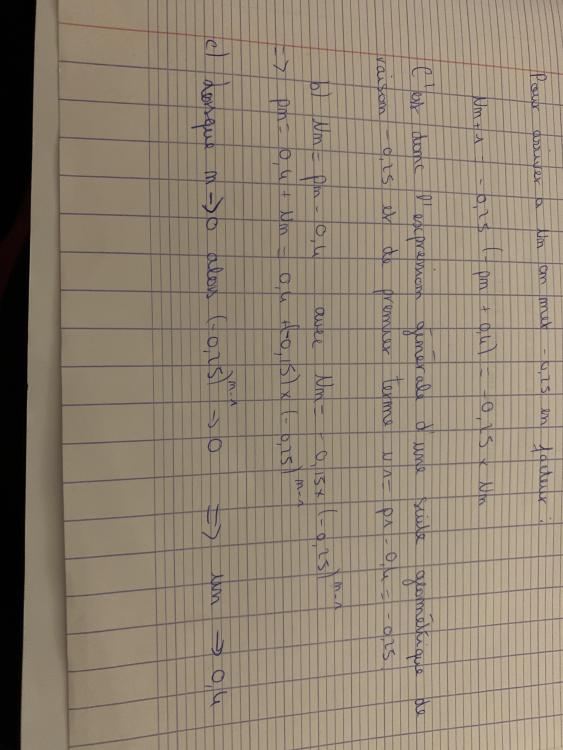 Pour arriver a Nm on met -0,25 en facteur :
Nm+1 = -0,25 (-pm + 0,4) = -0,25 x Nm
C'est donc l'expression générale d'une suite géométrique de
raison -0,25 et de premier terme u1 = p1 - 0,4 = -0,25.
b) Nm = pm - 0,4 avec Nm = -0,15x (-0,25)^m-1
=> pm = 0,4 + Nm = 0,4 + (-0,15) x (-0,25)^m-1
c) lorsque m -> 0 alors (-0,25)^m-1 -> 0 => un -> 0,4